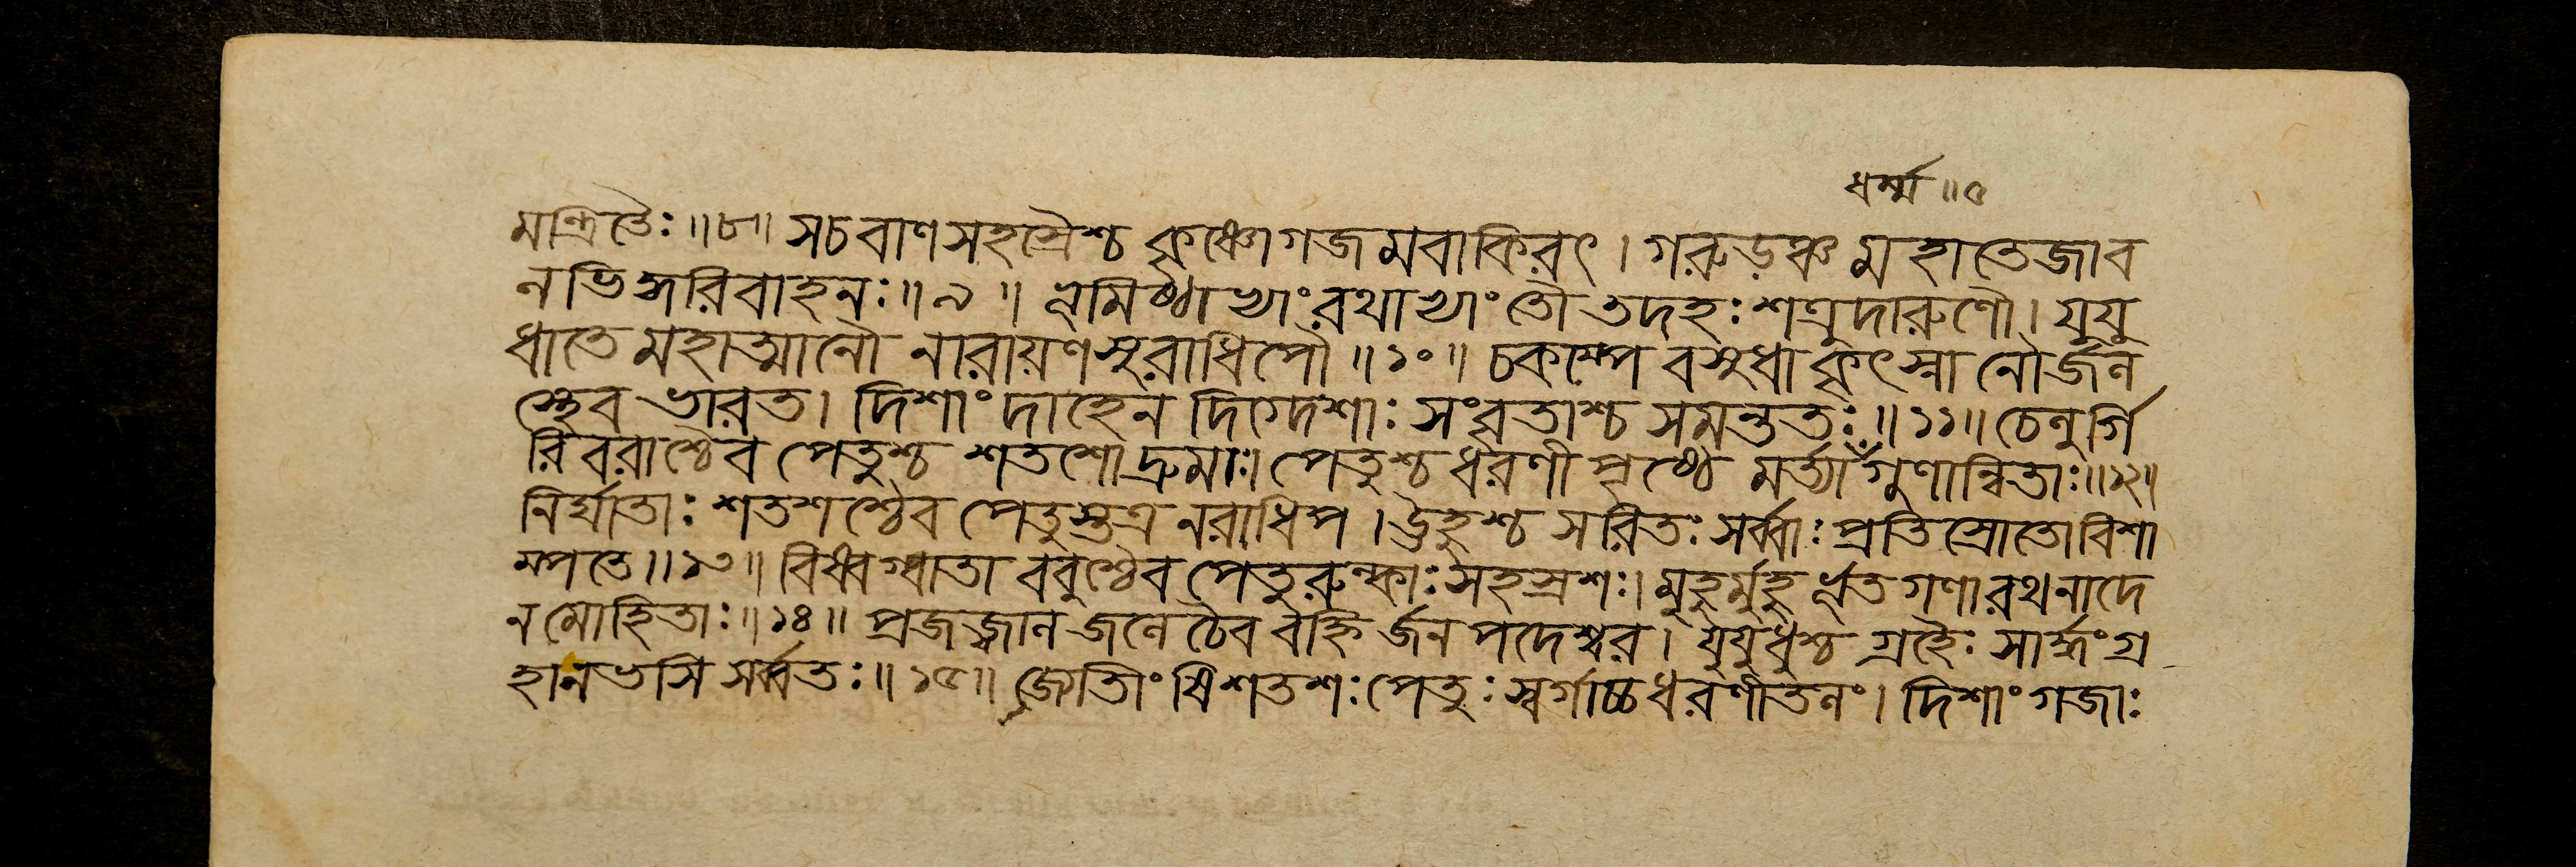 ধর্ম্ম ॥ ৫
মন্ত্রিতৈঃ ॥ ৮ ॥ স চ বাণসহস্রৈশ্চ কৃষ্ণো গজমবাকিরৎ । গরুড়ঞ্চ মহাতেজা ব
লভিদ্ধরিবাহনঃ ॥ ৯ ॥ ভূমিষ্ঠাভ্যাং রথাভ্যাং তৌ তদহঃ শত্রুদারুণৌ । যুযু
ধাতে মহাত্মানৌ নারায়ণসুরাধিপৌ ॥ ১০ ॥ চকম্পে বসুধা কৃৎস্না নৌর্জল
স্থেব ভারত । দিশাং দাহেন দিগ্দেশাঃ সংবৃতাশ্চ সমন্ততঃ ॥ ১১ ॥ চেলুর্গি
রিবরাশ্চৈব পেতুশ্চ শতশো দ্রুমাঃ । পেতুশ্চ ধরণীপৃষ্ঠে মর্ত্ত্যা গুণান্বিতাঃ ॥ ১২ ॥
নির্ঘাতাঃ শতশশ্চৈব পেতুস্তত্র নরাধিপ । ঊহুশ্চ সরিতঃ সর্ব্বাঃ প্রতিস্রোতো বিশা
ম্পতে ॥ ১৩ ॥ বিষ্বগ্বাতা ববুশ্চৈব পেতুরুল্কাঃ সহস্রশঃ । মুহুর্মুহুর্ভূতগণা রথনাদে
ন মোহিতাঃ ॥ ১৪ ॥ প্রজজ্বাল জলে চৈব বহ্নির্জনপদেশ্বর । যুযুধুশ্চ গ্রহৈঃ সার্দ্ধং গ্র
হা নভসি সর্ব্বতঃ ॥ ১৫ ॥ জ্যোতীংষি শতশঃ পেতুঃ স্বর্গাচ্চ ধরণীতলং । দিশাং গজাঃ